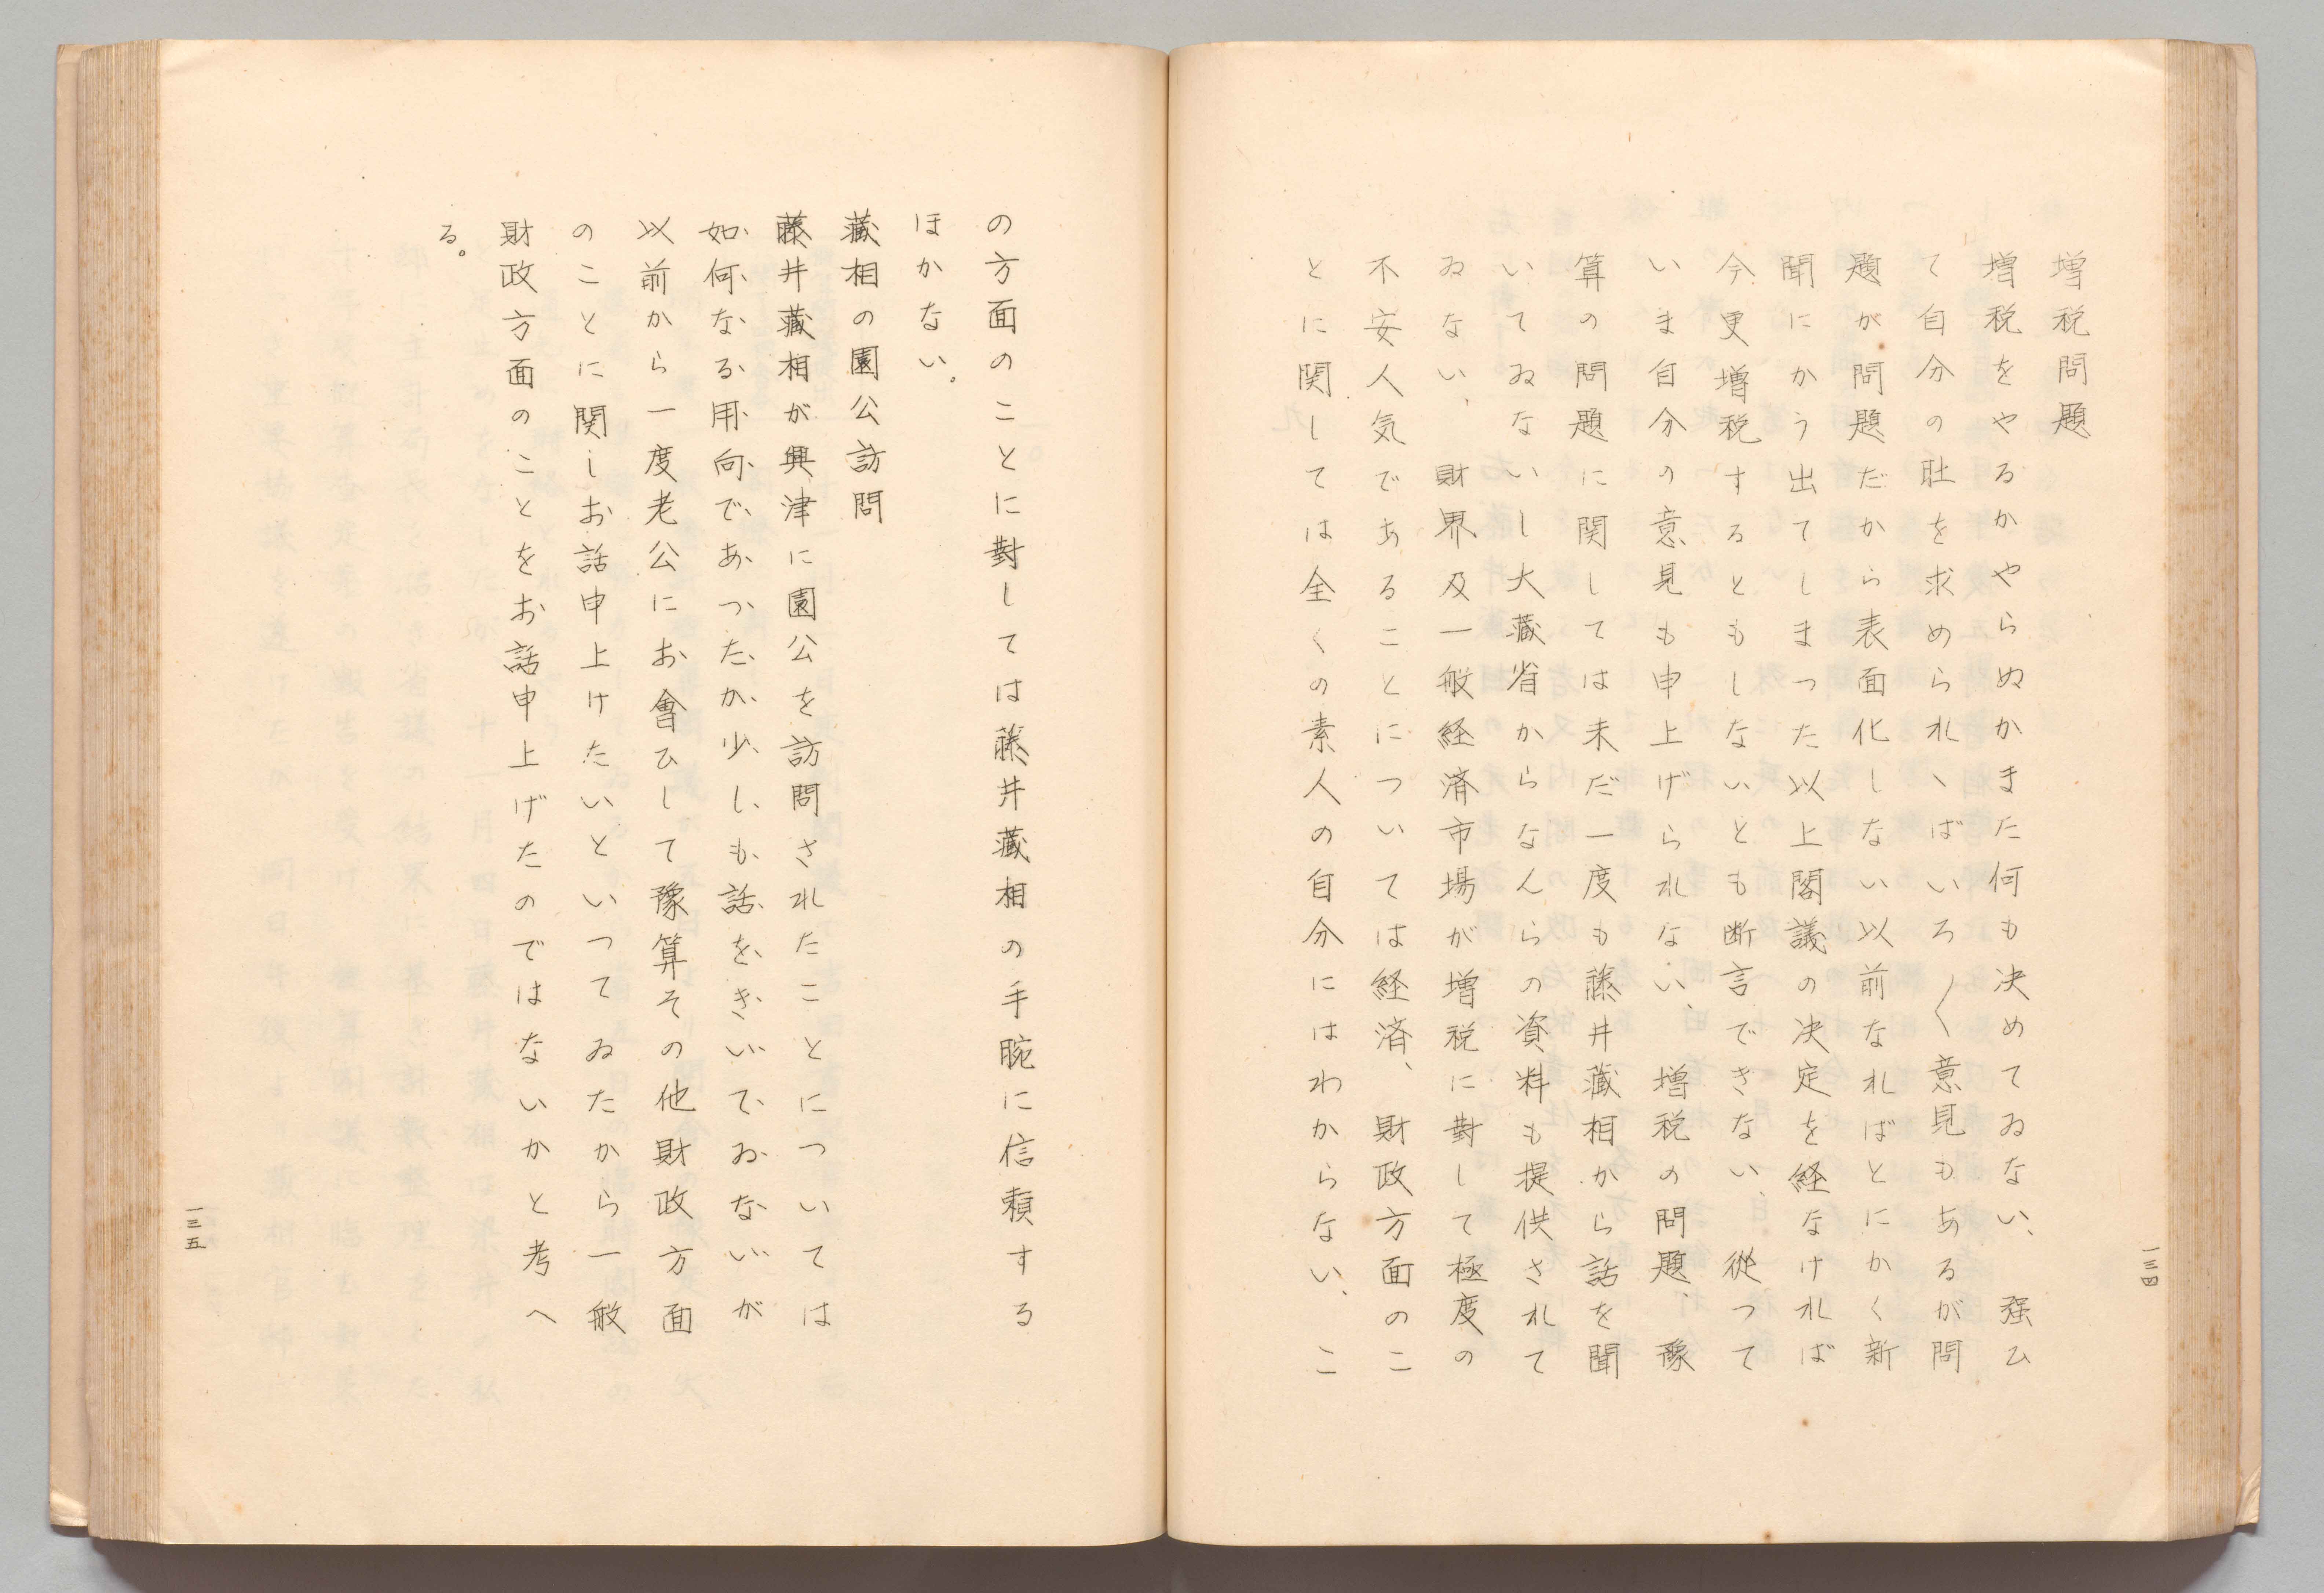 増税問題
増税をやるかやらぬかまた何も決めてゐない、強ひ
て自分の肚を求められゝばいろ〱意見もあるが問
題が問題だから表面化しない以前なればとにかく新
聞にかう出てしまつた以上閣議の決定を経なければ
今更増税するともしないとも断言できない、従つて
いま自分の意見も申上げられない、増税の問題、豫
算の問題に関しては未だ一度も藤井藏相から話を聞
いてゐないし大藏省からなんらの資料も提供されて
ゐない、財界及一般経済市場が増税に對して極度の
不安人気であることについては経済、財政方面のこ
とに関しては全くの素人の自分にはわからない、こ
一三四
の方面のことに對しては藤井藏相の手腕に信頼する
ほかない。
藏相の園公訪問
藤井藏相が興津に園公を訪問されたことについては
如何なる用向であつたか少しも話をきいてゐないが
以前から一度老公にお會ひして豫算その他財政方面
のことに関しお話申上けたいといつてゐたから一般
財政方面のことをお話申上げたのではないかと考へ
る。
一三五